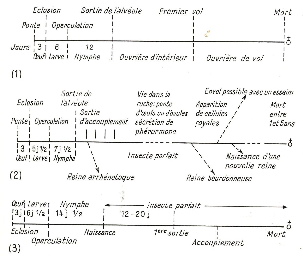 Eclosion Sortie de l'alvéole Premier vol Mort
Ponte Operculation
Jours 3 6 12
Œuf Larve Nymphe Ouvrière d'intérieur Ouvrière de vol
(1)
Envol possible avec un essaim
Eclosion Sortie de l'alvéole Vie dans la ruche: ponte d'œufs ou
sécrétion de phéromone Apparition de cellules royales Mort entre 1 et 5 ans
Ponte Operculation Sortie d'accouplement
3 5 ½ 7 ½
Œuf Larve Nymphe Insecte parfait Naissance d'une nouvelle reine
(2) Reine arrhénotoque Reine bourdonneuse
Œuf Larve Nymphe Insecte parfait
3 6 ½ 14 ½ 12-20 j
Eclosion Naissance 1ère sortie Mort
Operculation Accouplement
(3)